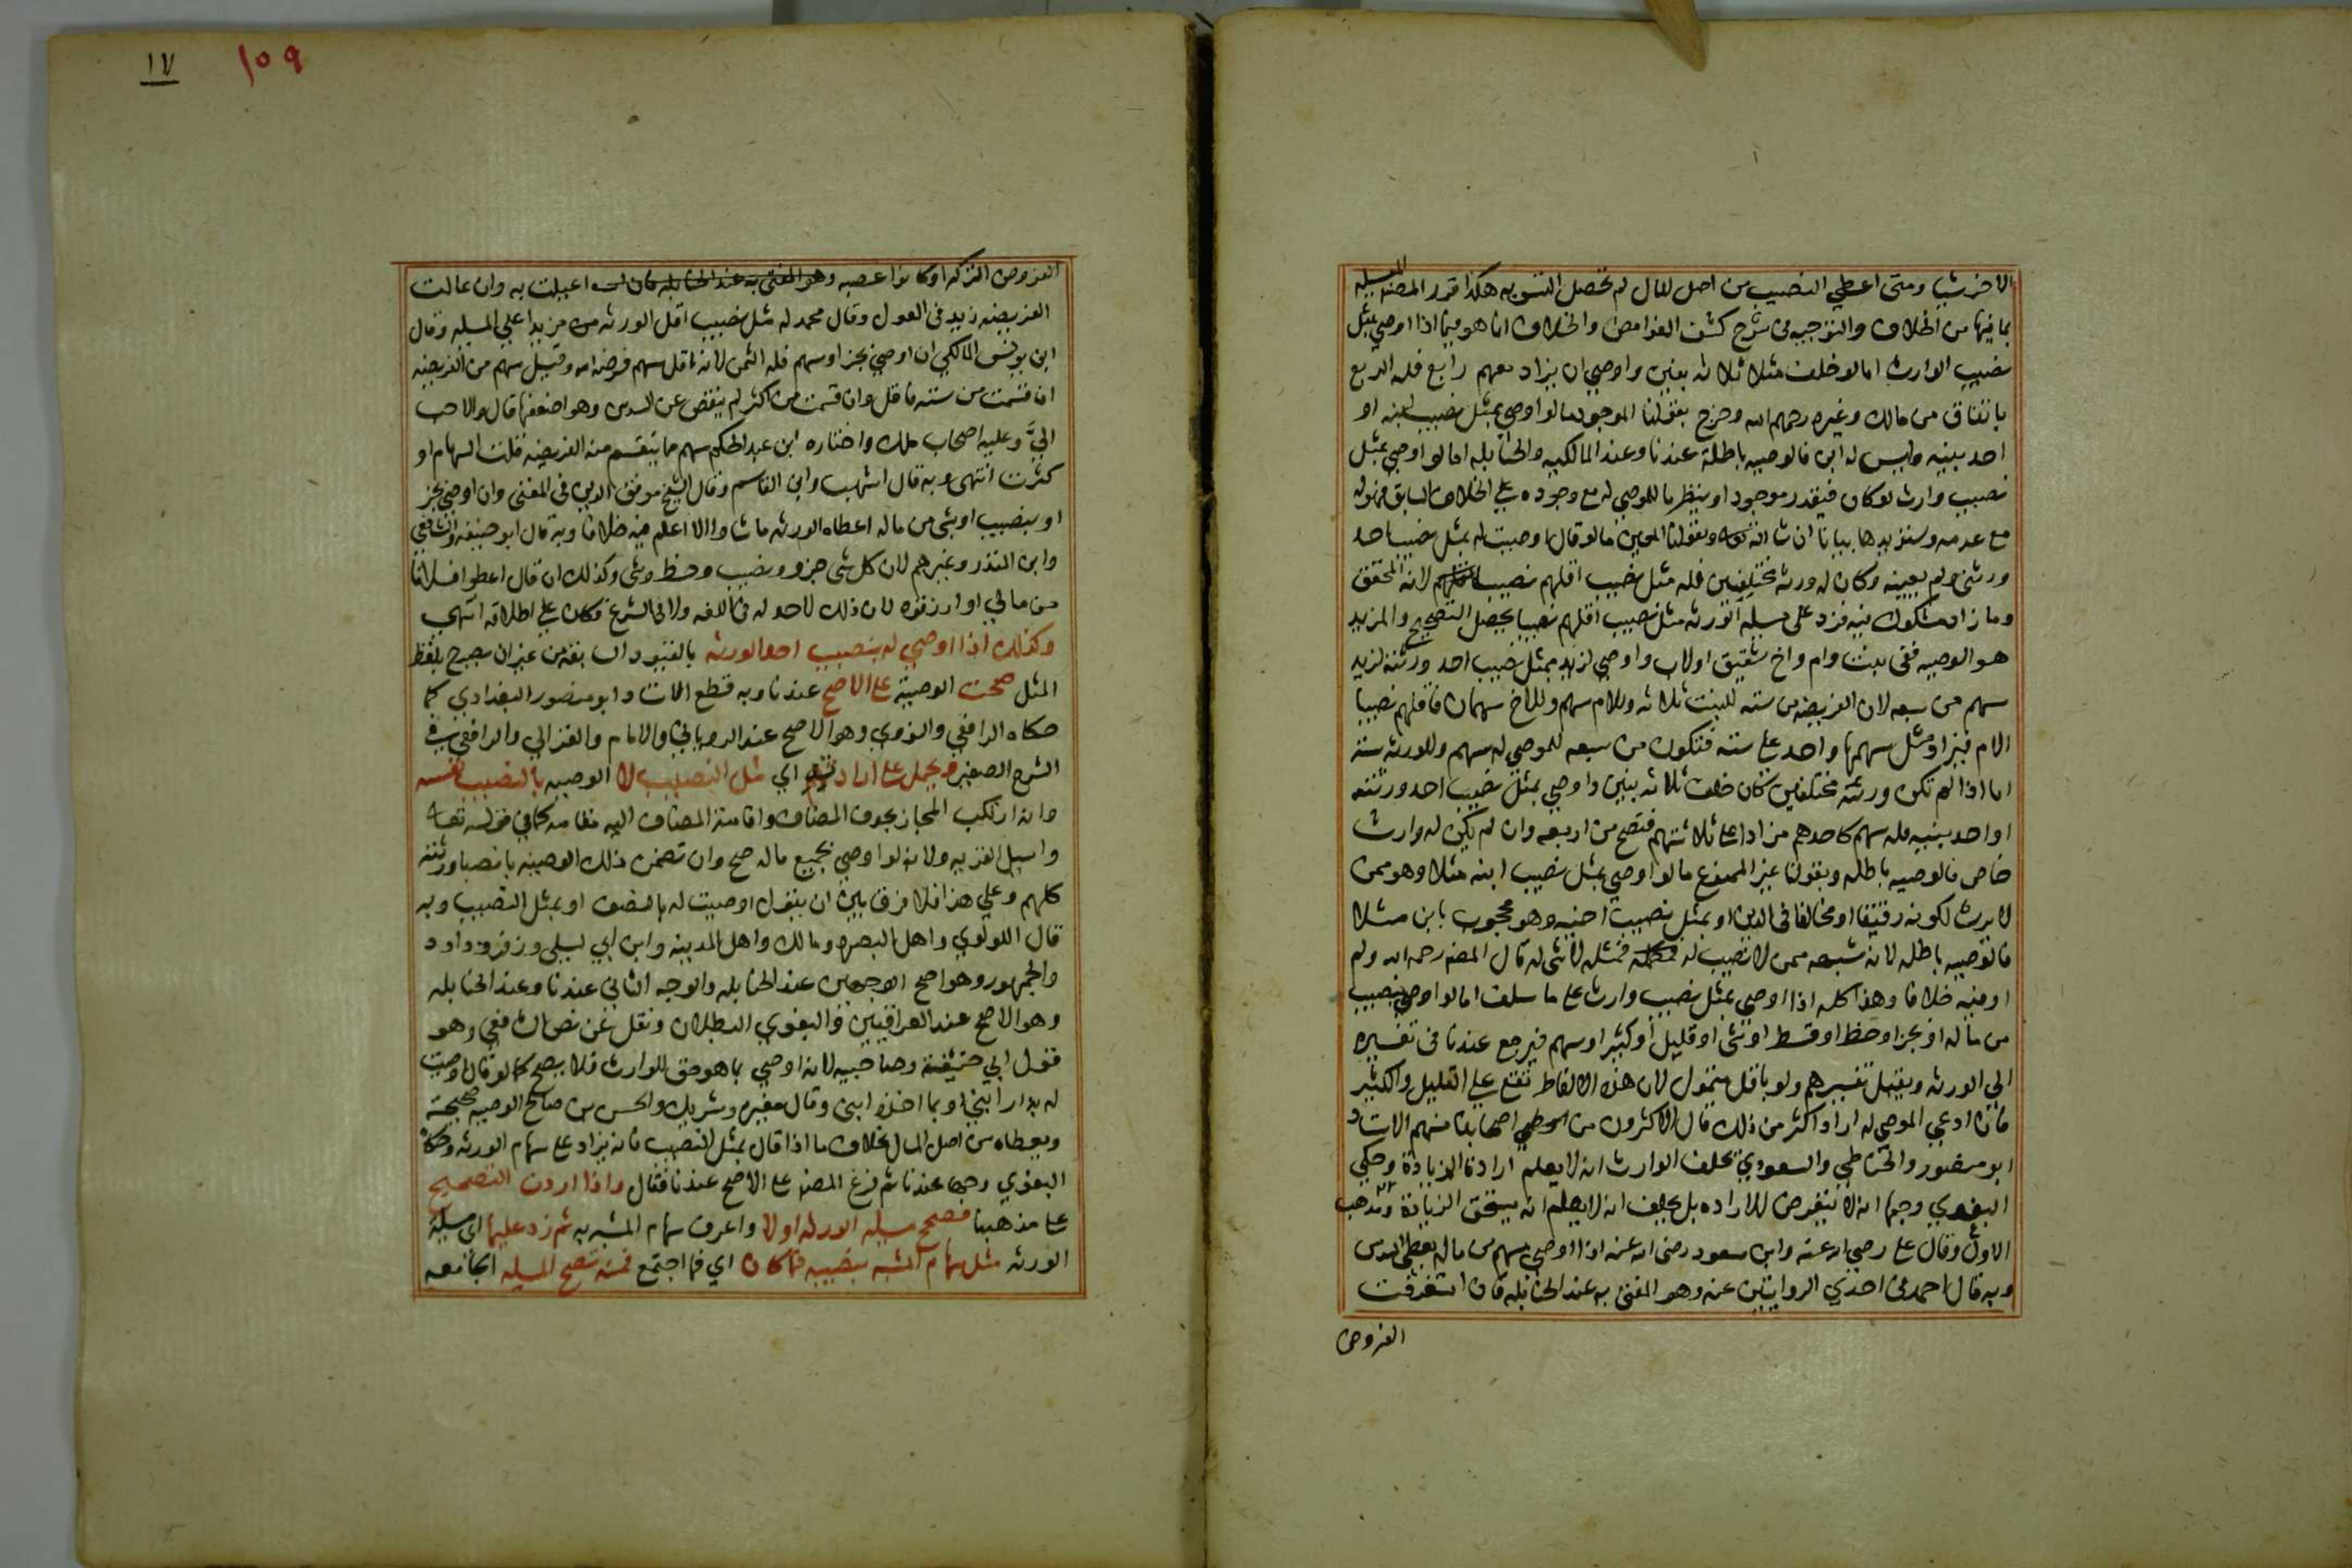 الاخر شيا ومتى اعطي النصيب من اصل المال لم تحصل التسويه هكذا قرر المصنف المسيله
بما فيها من الخلاف والتوجيه في شرح كشف الغوامض والخلاف انما هو فيما اذا اوصي بمثل
نصيب الوارث اما لو خلف مثلا ثلاثه بنين واوصي ان يزاد معهم رابع فله الربع
باتفاق من مالك وغيره رحمهم الله وخرج بقولنا الموجود ما لو اوصي بمثل نصيب ابنه او
احد بنيه وليس له ابن فالوصيه باطلة عندنا وعند المالكيه والحنابله اما لو اوصي بمثل
نصيب وارث لو كان فيقدر موجودا وينظر ما للموصي له مع وجوده علي الخلاف السابق فهو له
مع عدمه وسنزيدها بيانا ان شا الله وبقولنا المعين ما لو قال اوصيت له بمثل نصيب احد
ورثتي ولم يعينه وكان له ورثه مختلفين فله مثل نصيب اقلهم نصيبا لانه المحقق
وما زاد مشكوك فيه فزد على مسيله الورثه مثل نصيب اقلهم نصيبا يحصل التصحيح والمزيد
هو الوصيه ففي بنت وام واخ شقيق اولاب واوصي لزيد بمثل نصيب احد ورثته لزيد
سهم من سبعه لان الفريضه من سته للبنت ثلاثه وللام سهم وللاخ سهمان فاقلهم نصيبا
الام فيزاد مثل سهمها واحد علي سته فتكون من سبعه للموصي له سهم وللورثه ستة
اما اذا لم تكن ورثته مختلفين كان خلف ثلاثه بنين واوصي بمثل نصيب احد ورثته
او احد بنيه فله سهم كاحدهم مزادا علي ثلاثتهم فتصح من اربعه وان لم يكن له وارث
خاص فالوصيه باطله وبقولنا غير الممنوع ما لو اوصي بمثل نصيب ابنه مثلا وهو ممن
لا يرث لكونه رقيقا او مخالفا في الدين او بمثل نصيب اخيه وهو محجوب بابن مثلا
فالوصيه باطله لانه شبهه بمن لا نصيب له فمثله لا شي له قال المصنف رحمه الله ولم
ار فيه خلافا وهذا كله اذا اوصي بمثل نصيب وارث علي ما سلف اما لو اوصي بنصيب
من ماله او بجزا وحظ او قسط او شي او قليل او كثير او سهم فيرجع عندنا في تفسيره
الي الورثه ويقبل تفسيرهم ولو باقل متمول لان هذه الالفاظ تقع علي القليل والكثير
فان ادعي الموصي له اراد اكثر من ذلك قال الاكثرون من اصحابنا منهم الاستاد
ابو منصور والحناطي والمسعودي يحلف الوارث انه لا يعلم ارادة الزيادة وحكي
البغوي وجها انه لا يتعرض للاراده بل يحلف انه لا يعلم انه يستحق الزيادة ومذهب
الاول وقال علي رضي الله عنه وابن مسعود رضي الله عنه اذا اوصي بسهم من ماله يعطي السدس
وبه قال احمد في احدي الروايتين عنه وهو المفتى به عند الحنابله فان استغرقت
الفروض
١٧
١٥٩
الفروض التركه او كانوا عصبه وهو المفتى به عند الحنابله اعيلت به وان عالت
الفريضه زيد في العول وقال محمد له مثل نصيب اقل الورثه مزيدا علي المسيله وقال
ابن يونس المالكي ان اوصي بجزا وسهم فله الثمن لانه اقل سهم فرضه الله وقيل سهم من الفريضه
ان قسمت من سته فاقل وان قسمت من اكثر لم ينقص عن السدس وهو اضعفها قال والاحب
اليَّ وعليه اصحاب ملك واختاره ابن عبد الحكم سهم مما تنقسم منه الفريضه قلت السهام او
كثرت انتهى وبه قال اشهب وابن القاسم وقال الشيخ موفق الدين في المغني وان اوصي بجز
او بنصيب او بشي من ماله اعطاه الورثه ما شاوا لا اعلم فيه خلافا وبه قال ابو حنيفه والشافعي
وابن المنذر وغيرهم لان كل شي جزو ونصيب وحظ وشي وكذلك ان قال اعطوا فلانا
من مالي او ارزقوه لان ذلك لا حد له في اللغه ولا في الشرع فكان علي اطلاقه انتهي
وكذلك اذا اوصي له بنصيب احد الورثه بالقيود السابقه من غير ان يصرح بلفظ
المثل صحت الوصية علي الاصح عندنا وبه قطع الاستاد ابو منصور البغدادي كما
حكاه الرافعي والنووي وهو الاصح عند الروياني والامام والغزالي والرافعي في
الشرح الصغير ويحمل علي ارادته اي مثل النصيب لا الوصيه بالنصيب نفسه
وانه ارتكب المجاز بحذف المضاف واقامة المضاف اليه مقامه كما في قوله تعالى
واسيل القريه ولانه لو اوصي بجميع ماله صح وان تضمن ذلك الوصيه بانصبا ورثته
كلهم وعلي هذا فلا فرق بين ان يقول اوصيت له بالنصيب او بمثل النصيب وبه
قال اللولوي واهل البصره ومالك واهل المدينه وابن ابي ليلي وزفر وداود
والجمهور وهو اصح الوجهين عند الحنابله والوجه الثاني عندنا وعند الحنابله
وهو الاصح عند العراقيين والبغوي البطلان ونقل عن نص الشافعي وهو
قول ابي حنيفة وصاحبيه لانه اوصي بما هو حق للوارث فلا يصح كما لو قال اوصيت
له بدار ابني او بما اخذه ابني وقال مغيره وشريك والحسن بن صالح الوصيه صحيحة
ويعطاه من اصل المال بخلاف ما اذا قال بمثل النصيب فانه يزاد علي سهام الورثه وحكاه
البغوي وجها عندنا ثم فرع المصنف علي الاصح عندنا فقال واذا اردت التصحيح
علي مذهبنا فصحح مسيله الورثه اولا واعرف سهام المشبه به ثم زد عليها اي مسيلة
الورثه مثل سهام المشبه بنصيبه فما كان اي فما اجتمع فمنه تصح المسيله الجامعه